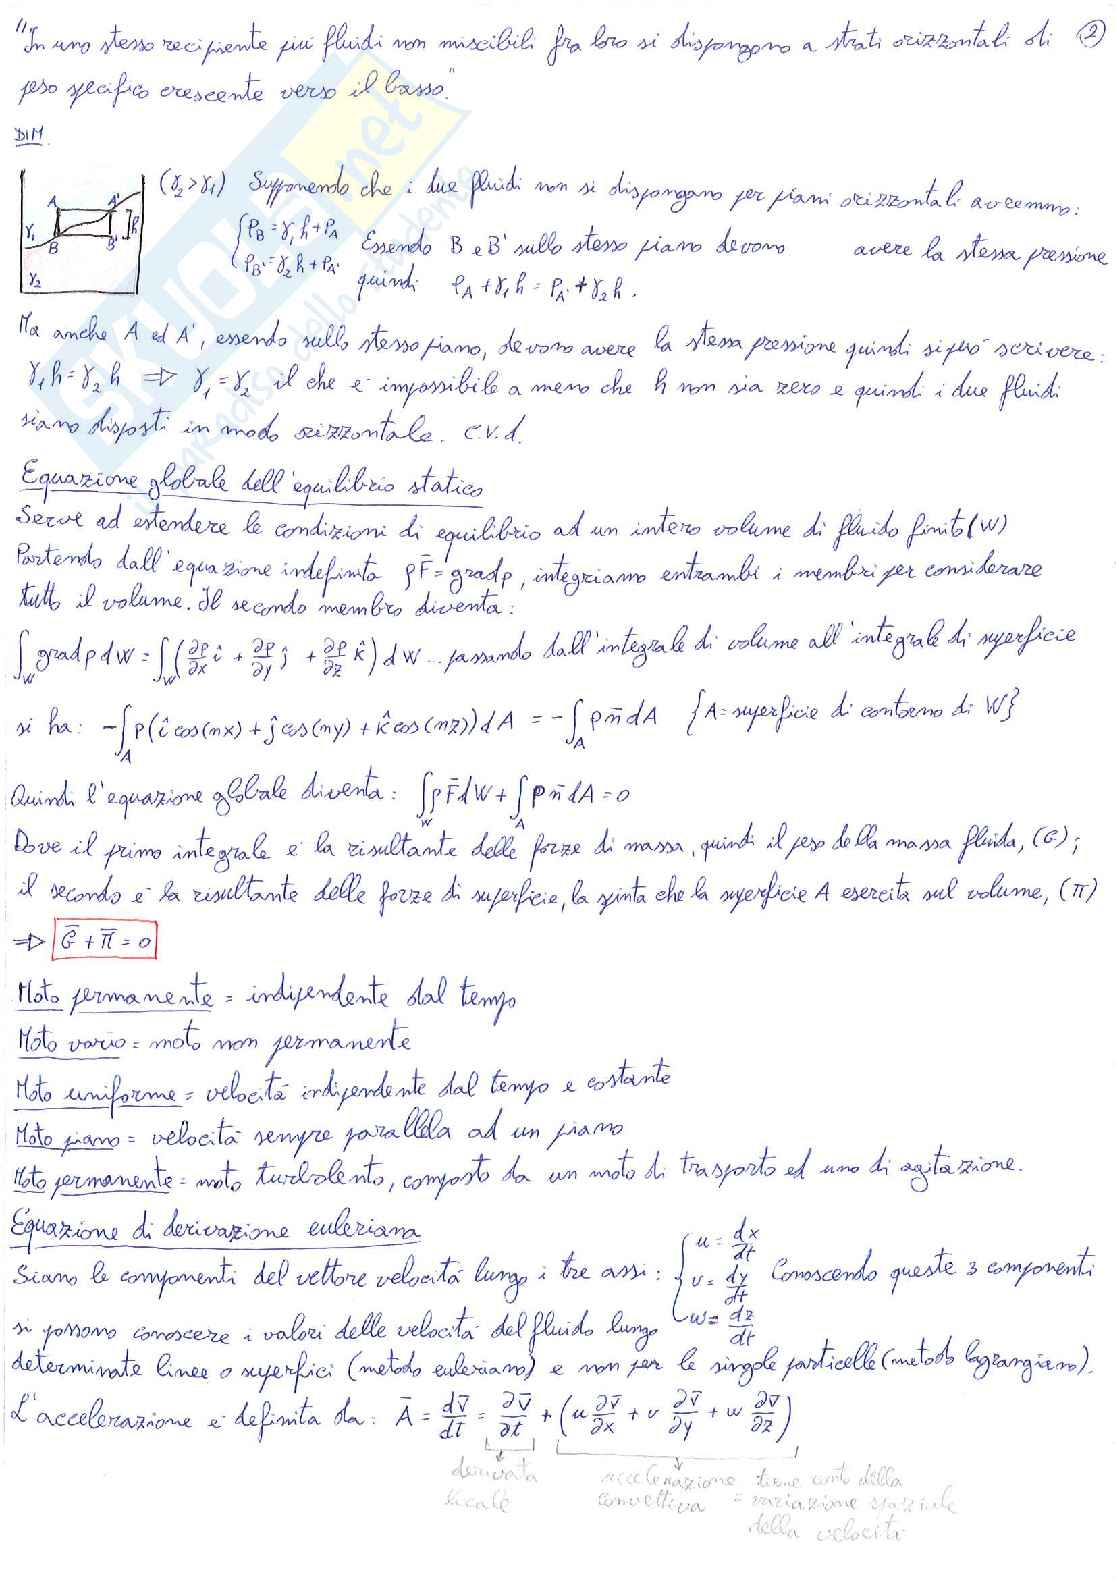 "In uno stesso recipiente più fluidi non miscibili fra loro si dispongono a strati orizzontali di ②
peso specifico crescente verso il basso."
DIM.
(γ₂>γ₁) Supponendo che i due fluidi non si dispongano per piani orizzontali avremmo:
A A'
γ₁ h
B B'
γ₂
{P_B = γ₁h + P_A
P_B' = γ₂h + P_A'
Essendo B e B' sullo stesso piano devono avere la stessa pressione
quindi P_A + γ₁h = P_A' + γ₂h.
Ma anche A ed A', essendo sullo stesso piano, devono avere la stessa pressione quindi si può scrivere:
γ₁h = γ₂h ⇒ γ₁ = γ₂ il che è impossibile a meno che h non sia zero e quindi i due fluidi
siano disposti in modo orizzontale. c.v.d.
Equazione globale dell'equilibrio statico
Serve ad estendere le condizioni di equilibrio ad un intero volume di fluido finito (W)
Partendo dall'equazione indefinita ρF̄ = grad p, integriamo entrambi i membri per considerare
tutto il volume. Il secondo membro diventa:
∫_W grad p dW = ∫_W (∂p/∂x î + ∂p/∂y ĵ + ∂p/∂z k̂) dW ... passando dall'integrale di volume all'integrale di superficie
si ha: -∫_A p(î cos(nx) + ĵ cos(ny) + k̂ cos(nz)) dA = -∫_A p n̄ dA {A = superficie di contorno di W}
Quindi l'equazione globale diventa: ∫_W ρF̄ dW + ∫_A p n̄ dA = 0
Dove il primo integrale è la risultante delle forze di massa, quindi il peso della massa fluida, (G);
il secondo è la risultante delle forze di superficie, la spinta che la superficie A esercita sul volume, (π)
⇒ Ḡ + π̄ = 0
Moto permanente = indipendente dal tempo
Moto vario = moto non permanente
Moto uniforme = velocità indipendente dal tempo e costante
Moto piano = velocità sempre parallela ad un piano
Moto permanente = moto turbolento, composto da un moto di trasporto ed uno di agitazione.
Equazione di derivazione euleriana
Siano le componenti del vettore velocità lungo i tre assi: {u = dx/dt
v = dy/dt
w = dz/dt
Conoscendo queste 3 componenti
si possono conoscere i valori delle velocità del fluido lungo
determinate linee o superfici (metodo euleriano) e non per le singole particelle (metodo lagrangiano).
L'accelerazione è definita da: Ā = dv̄/dt = ∂v̄/∂t + (u ∂v̄/∂x + v ∂v̄/∂y + w ∂v̄/∂z)
derivata
locale
accelerazione
convettiva
= tiene conto della
variazione spaziale
della velocità
SKUOLA.net
il paradiso dello studente